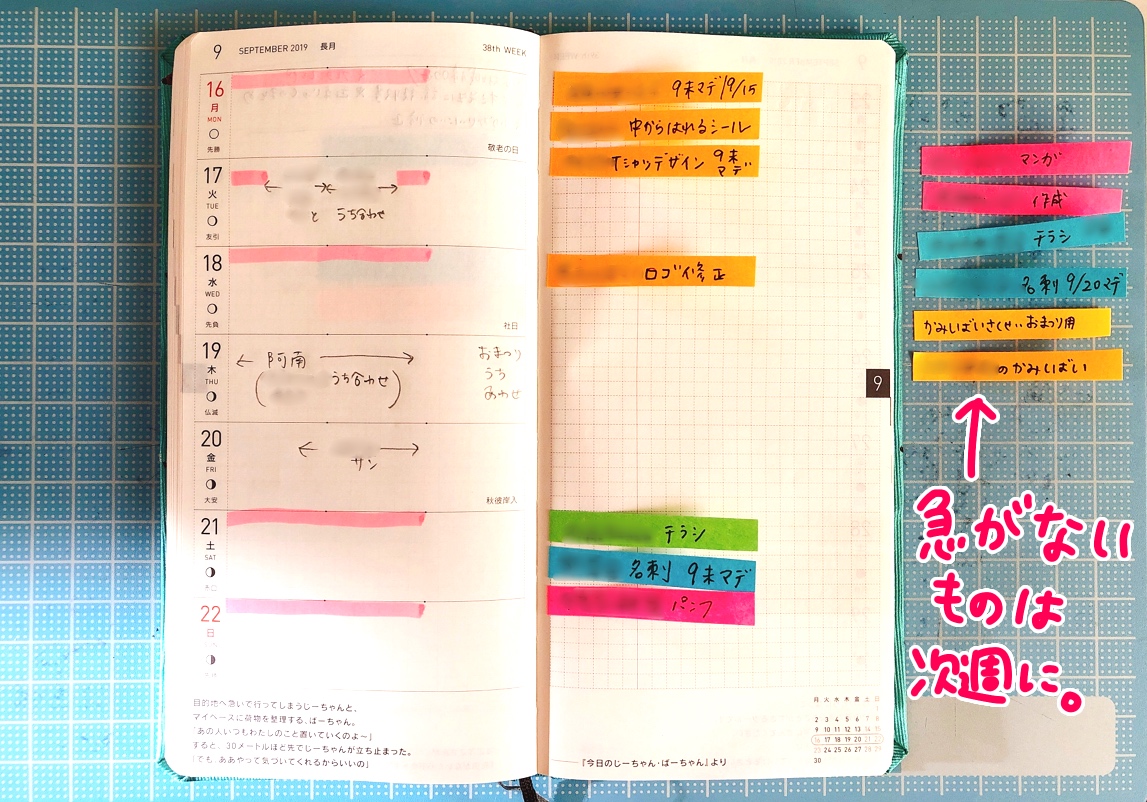 9 SEPTEMBER 2019 長月 38th WEEK
16
月
MON
先勝
敬老の日
17
火
TUE
友引
と うち合わせ
18
水
WED
先負
社日
19
木
THU
仏滅
阿南
うち合わせ
おまつり
うち
あわせ
20
金
FRI
大安
サン
秋彼岸入
21
土
SAT
22
日
目的地へ急いで行ってしまうじーちゃんと、
マイペースに荷物を整理する、ばーちゃん。
「あの人いつもわたしのこと置いていくのよ〜」
すると、30メートルほど先でじーちゃんが立ち止まった。
「でも、ああやって気づいてくれるからいいの」
9末マデ/9/15
中からはれるシール
Tシャツデザイン 9末マデ
ロゴイ修正
チラシ
名刺 9末マデ
パンフ
9
月 火 水 木 金 土 日
1
2 3 4 5 6 7 8
9 10 11 12 13 14 15
16 17 18 19 20 21 22
23 24 25 26 27 28 29
30
『今日のじーちゃん・ばーちゃん』より
マンガ
作成
チラシ
名刺 9/20マデ
かみしばいさくせい おまつり用
のかみしばい
急がない
ものは
次週に。